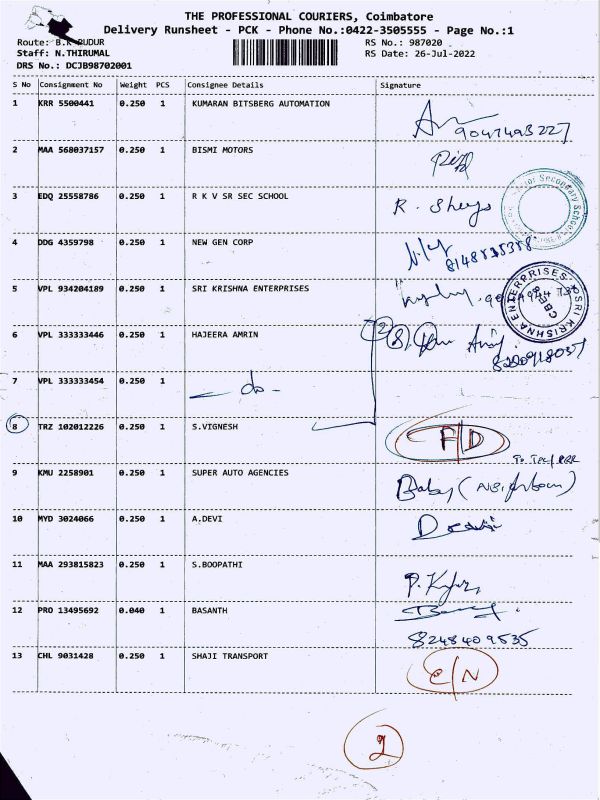 THE PROFESSIONAL COURIERS, Coimbatore
Delivery Runsheet - PCK - Phone No.:0422-3505555 - Page No.:1
Route: B.K PUDUR
RS No.: 987020
Staff: N.THIRUMAL
RS Date: 26-Jul-2022
DRS No.: DCJB98702001
S No Consignment No Weight PCS Consignee Details Signature
1 KRR 5500441 0.250 1 KUMARAN BITSBERG AUTOMATION
2 MAA 568037157 0.250 1 BISMI MOTORS
3 EDQ 25558786 0.250 1 R K V SR SEC SCHOOL
Senior Secondary School
4 DDG 4359798 0.250 1 NEW GEN CORP
5 VPL 934204189 0.250 1 SRI KRISHNA ENTERPRISES
SRI KRISHNA ENTERPRISES
CBE
6 VPL 333333446 0.250 1 HAJEERA AMRIN
7 VPL 333333454 0.250 1
- do -
8 TRZ 102012226 0.250 1 S.VIGNESH F/D
9 KMU 2258901 0.250 1 SUPER AUTO AGENCIES Baby (Neighbour)
10 MYD 3024066 0.250 1 A.DEVI Deavi
11 MAA 293815823 0.250 1 S.BOOPATHI
12 PRO 13495692 0.040 1 BASANTH
8248409535
13 CHL 9031428 0.250 1 SHAJI TRANSPORT E/N
2